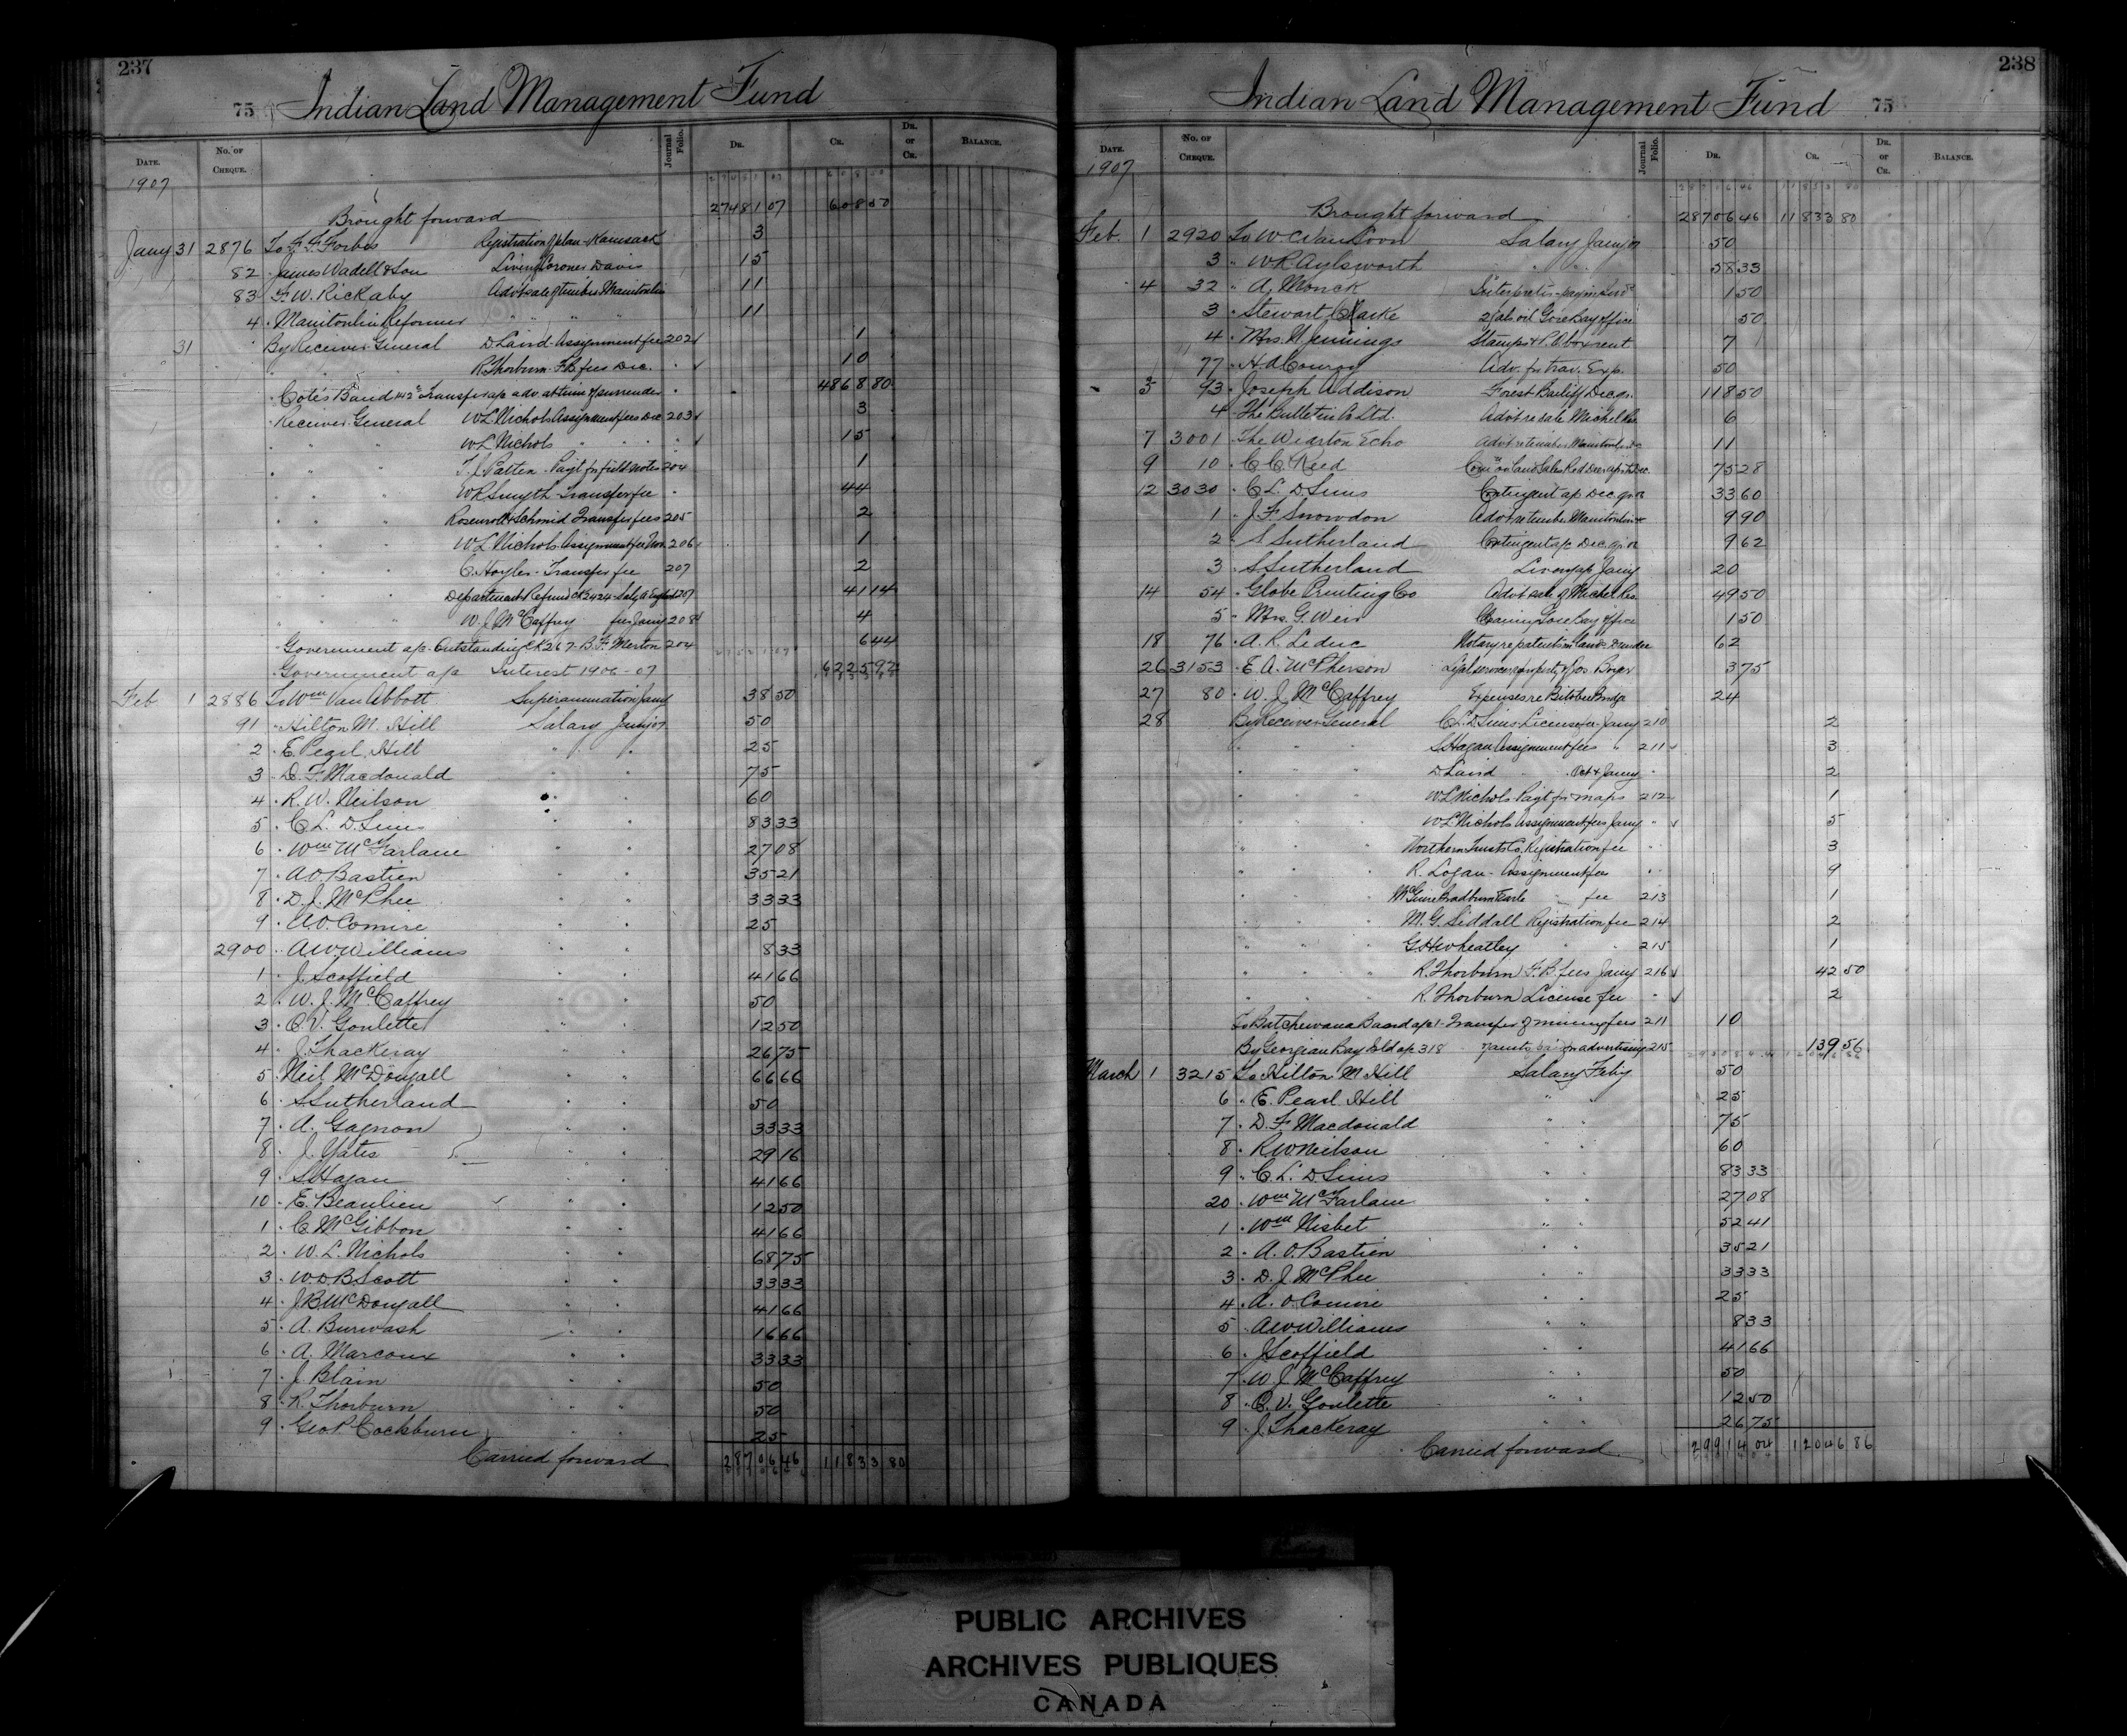 237
75 Indian Land Management Fund
DATE. No. OF CHEQUE. Journal Folio. DR. CR. DR. or CR. BALANCE.
1907
Brought forward 27481 07 608 50
Jany 31 2876 To F. F. Forbes Registration of plan - Kamsack 3
82 " James Wadell & Son Livery Coroner Davis 15
83 " F. W. Rickaby Advt sale of timber Manitoulin 11
4 " Manitoulin Reformer " " " " 11
31 By Receiver General D. Laird - Assignment fee 202 1
" " R. Thorburn F.B. fees Dec. " 10
" Cote's Band Transfer a/c adv. at time of surrender " 4868 80
" Receiver General W L Nichols Assignment fees Dec 203 3
" " W L Nichols " " " 15
" " " T. J. Patten - Payt for field notes 204 1
" " " W R Smyth - Transfer fee " 44
" " " Schmid Transfer fees 205 2
" " " W L Nichols Assignment fee Nov. 206 1
" " " C. Hoyles - Transfer fee 207 2
" " " Department Refund Ck 2424 207 41 14
" " " W. J. McCaffrey fees Jany 208 4
" Government a/c - Outstanding CK 267 - B. F. Merton 204 6 44
" Government a/c Interest 1906-07 6225 92
Feb 1 2886 To Wm Van Abbott Superannuation Jany 38 50
91 " Hilton M. Hill Salary Jany 07 50
2 " E. Pearl Hill " " 25
3 " D. F. Macdonald " " 75
4 " R. W. Neilson " " 60
5 " C. L. D. Sims " " 83 33
6 " Wm McFarlane " " 27 08
7 " A. O. Bastien " " 35 21
8 " D. J. McPhee " " 33 33
9 " A. O. Comire " " 25
2900 " A W Williams " " 8 33
1 " J. Scoffield " " 41 66
2 " W. J. McCaffrey " " 50
3 " C. V. Goulette " " 12 50
4 " J. Thackeray " " 26 75
5 " Neil McDougall " " 66 66
6 " S. Sutherland " " 50
7 " A. Gagnon " " 33 33
8 " J. Yates " " 29 16
9 " S. Hagan " " 41 66
10 " E. Beaulieu " " 12 50
1 " C. McGibbon " " 41 66
2 " W. L. Nichols " " 68 75
3 " W. D. B. Scott " " 33 33
4 " J. B. McDougall " " 41 66
5 " A. Burwash " " 16 66
6 " A. Marcoux " " 33 33
7 " J. Blain " " 50
8 " R. Thorburn " " 50
9 " Geo P. Cockburn " " 25
Carried forward 28706 46 11833 80
238
Indian Land Management Fund 75
DATE. No. OF CHEQUE. Journal Folio. DR. CR. DR. or CR. BALANCE.
1907
Brought forward 28706 46 11833 80
Feb. 1 2920 To W. C. Van Loon Salary Jany 07 50
3 " W. R. Aylsworth " " 58 33
4 32 " A. Monck 1 50
3 " Stewart Clarke oil Gore Bay office 50
4 " Mrs. N. Jennings Stamps & P.O. box rent 7
77 " H. A. Conroy Adv. for trav. Exp. 50
5 93 " Joseph Addison Forest Bailiff Dec qr. 118 50
4 " The Bulletin Co Ltd. Advt re sale Michel Res 6
7 3001 " The Wiarton Echo Advt re timber Manitoulin 11
9 10 " C. C. Reed 75 28
12 3030 " C. L. D. Sims Contingent a/c Dec. qr. 33 60
1 " J. F. Snowdon Advt re timber Manitoulin 9 90
2 " S Sutherland Contingent a/c Dec. qr. 9 62
3 " S Sutherland Livery a/c Jany 20
14 54 " Globe Printing Co Advt sale of Michel Res 49 50
5 " Mrs. G. Weir Cleaning Gore Bay office 1 50
18 76 " A. R. Leduc Notary re patents 62
26 3153 " E. A. McPherson Legal services property of Jos. Boyer 3 75
27 80 " W. J. McCaffrey Expenses re Bitobee Bridge 24
28 By Receiver General C. L. D. Sims License fee - Jany 210 2
" " " S Hagan Assignment fees " 211 3
" " " D. Laird " Oct & Jany " 2
" " " W L Nichols Payt for maps 212 1
W L Nichols Assignment fees Jany " 5
" " " Northern Trusts Co. Registration fee " 3
" " " R. Logan - Assignment fees " 9
" " " McGuire Bradburn Earle " fee 213 1
M. G. Siddall Registration fee 214 2
" " " G H Wheatley " " 215 1
" " " R. Thorburn F. B. fees Jany 216 42 50
" " " R. Thorburn License fee " 2
To Batchewana Band a/c 1 - Transfer of mining fees 211 10
By Georgian Bay Isld a/c 318 advertising 215 139 56
March 1 3215 To Hilton M Hill Salary Feby 50
6 " E. Pearl Hill " 25
7 " D. F. Macdonald " " 75
8 " R W Neilson " " 60
9 " C. L. D. Sims " " 83 33
20 " Wm McFarlane " " 27 08
1 " Wm Nisbet " " 52 41
2 " A. O. Bastien " " 35 21
3 " D. J. McPhee " " 33 33
4 " A. O. Comire " " 25
5 " A W Williams " " 8 33
6 " J Scoffield " " 41 66
7 " W. J. McCaffrey " " 50
8 " C. V. Goulette " " 12 50
9 " J. Thackeray " " 26 75
Carried forward 29914 04 12046 86
PUBLIC ARCHIVES
ARCHIVES PUBLIQUES
CANADA